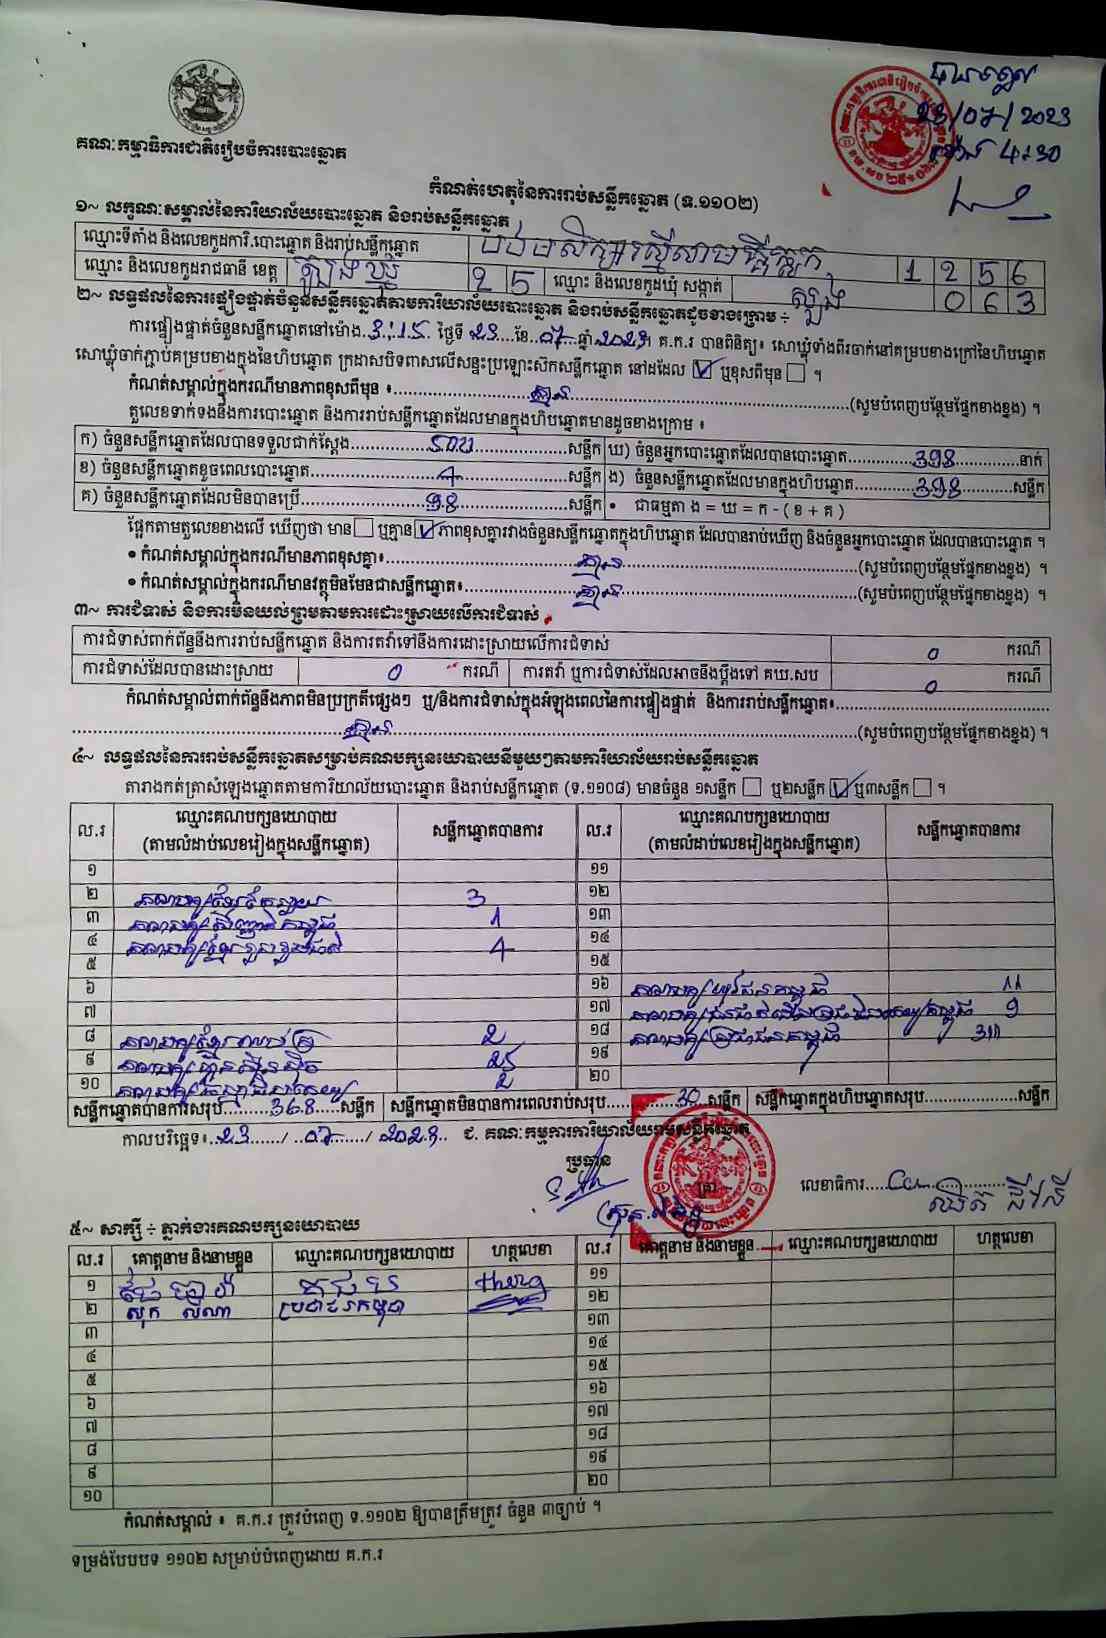 23/07/2023
4:30
គណៈកម្មាធិការជាតិរៀបចំការបោះឆ្នោត
កំណត់ហេតុនៃការរាប់សន្លឹកឆ្នោត (ទ.១១០២)
១~ លក្ខណៈសម្គាល់នៃការិយាល័យបោះឆ្នោត និងរាប់សន្លឹកឆ្នោត
ឈ្មោះទីតាំង និងលេខកូដការិ.បោះឆ្នោត និងរាប់សន្លឹកឆ្នោត 1 2 5 6
ឈ្មោះ និងលេខកូដរាជធានី ខេត្ត ត្បូងឃ្មុំ 2 5 ឈ្មោះ និងលេខកូដឃុំ សង្កាត់ ស្លួង 0 6 3
២~ លទ្ធផលនៃការផ្ទៀងផ្ទាត់ចំនួនសន្លឹកឆ្នោតតាមការិយាល័យបោះឆ្នោត និងរាប់សន្លឹកឆ្នោតដូចខាងក្រោម ÷
ការផ្ទៀងផ្ទាត់ចំនួនសន្លឹកឆ្នោតនៅម៉ោង 3:15 ថ្ងៃទី 23 ខែ 07 ឆ្នាំ 2023។ គ.ក.រ បានពិនិត្យ៖ សោឃ្លុំទាំងពីរចាក់នៅគម្របខាងក្រៅនៃហិបឆ្នោត
សោឃ្លុំចាក់ភ្ជាប់គម្របខាងក្នុងនៃហិបឆ្នោត ក្រដាសបិទពាសលើសន្ទះប្រឡោះស៊កសន្លឹកឆ្នោត នៅដដែល ☑ ឬខុសពីមុន ☐ ។
កំណត់សម្គាល់ក្នុងករណីមានភាពខុសពីមុន ៖ គ្មាន (សូមបំពេញបន្ថែមផ្នែកខាងខ្នង) ។
តួលេខទាក់ទងនឹងការបោះឆ្នោត និងការរាប់សន្លឹកឆ្នោតដែលមានក្នុងហិបឆ្នោតមានដូចខាងក្រោម ៖
ក) ចំនួនសន្លឹកឆ្នោតដែលបានទទួលជាក់ស្តែង សន្លឹក ឃ) ចំនួនអ្នកបោះឆ្នោតដែលបានបោះឆ្នោត 398 នាក់
ខ) ចំនួនសន្លឹកឆ្នោតខូចពេលបោះឆ្នោត សន្លឹក ង) ចំនួនសន្លឹកឆ្នោតដែលមានក្នុងហិបឆ្នោត 398 សន្លឹក
គ) ចំនួនសន្លឹកឆ្នោតដែលមិនបានប្រើ 98 សន្លឹក • ជាធម្មតា ង = ឃ = ក - ( ខ + គ )
ផ្អែកតាមតួលេខខាងលើ ឃើញថា មាន ☐ ឬគ្មាន ☑ ភាពខុសគ្នារវាងចំនួនសន្លឹកឆ្នោតក្នុងហិបឆ្នោត ដែលបានរាប់ឃើញ និងចំនួនអ្នកបោះឆ្នោត ដែលបានបោះឆ្នោត ។
• កំណត់សម្គាល់ក្នុងករណីមានភាពខុសគ្នា៖ គ្មាន (សូមបំពេញបន្ថែមផ្នែកខាងខ្នង) ។
• កំណត់សម្គាល់ក្នុងករណីមានវត្ថុមិនមែនជាសន្លឹកឆ្នោត៖ គ្មាន (សូមបំពេញបន្ថែមផ្នែកខាងខ្នង) ។
៣~ ការជំទាស់ និងការមិនយល់ព្រមតាមការដោះស្រាយលើការជំទាស់
ការជំទាស់ពាក់ព័ន្ធនឹងការរាប់សន្លឹកឆ្នោត និងការតវ៉ាទៅនឹងការដោះស្រាយលើការជំទាស់ 0 ករណី
ការជំទាស់ដែលបានដោះស្រាយ 0 ករណី ការតវ៉ា ឬការជំទាស់ដែលអាចនឹងប្តឹងទៅ គឃ.សប 0 ករណី
កំណត់សម្គាល់ពាក់ព័ន្ធនឹងភាពមិនប្រក្រតីផ្សេងៗ ឬ/និងការជំទាស់ក្នុងអំឡុងពេលនៃការផ្ទៀងផ្ទាត់ និងការរាប់សន្លឹកឆ្នោត៖
គ្មាន (សូមបំពេញបន្ថែមផ្នែកខាងខ្នង) ។
៤~ លទ្ធផលនៃការរាប់សន្លឹកឆ្នោតសម្រាប់គណបក្សនយោបាយនីមួយៗតាមការិយាល័យរាប់សន្លឹកឆ្នោត
តារាងកត់ត្រាសំឡេងឆ្នោតតាមការិយាល័យបោះឆ្នោត និងរាប់សន្លឹកឆ្នោត (ទ.១១០៨) មានចំនួន ១សន្លឹក ☐ ឬ២សន្លឹក ☑ ឬ៣សន្លឹក ☐ ។
ល.រ ឈ្មោះគណបក្សនយោបាយ (តាមលំដាប់លេខរៀងក្នុងសន្លឹកឆ្នោត) សន្លឹកឆ្នោតបានការ ល.រ ឈ្មោះគណបក្សនយោបាយ (តាមលំដាប់លេខរៀងក្នុងសន្លឹកឆ្នោត) សន្លឹកឆ្នោតបានការ
១ ១១
២ 3 ១២
៣ 1 ១៣
៤ 4 ១៤
៥ ១៥
៦ ១៦ គណបក្សយុវជនកម្ពុជា 11
៧ ១៧ 9
៨ 2 ១៨ គណបក្សប្រជាជនកម្ពុជា 311
៩ គណបក្សហ៊្វុនស៊ិនប៉ិច 25 ១៩
១០ 2 ២០
សន្លឹកឆ្នោតបានការសរុប 368 សន្លឹក សន្លឹកឆ្នោតមិនបានការពេលរាប់សរុប 30 សន្លឹក សន្លឹកឆ្នោតក្នុងហិបឆ្នោតសរុប សន្លឹក
កាលបរិច្ឆេទ៖ 23 / 07 / 2023 ជ. គណៈកម្មការការិយាល័យរាប់សន្លឹកឆ្នោត
ប្រធាន
លេខាធិការ
៥~ សាក្សី ÷ ភ្នាក់ងារគណបក្សនយោបាយ
ល.រ គោត្តនាម និងនាមខ្លួន ឈ្មោះគណបក្សនយោបាយ ហត្ថលេខា ល.រ គោត្តនាម និងនាមខ្លួន ឈ្មោះគណបក្សនយោបាយ ហត្ថលេខា
១ ១១
២ សុក លីណា ប្រជាជនកម្ពុជា ១២
៣ ១៣
៤ ១៤
៥ ១៥
៦ ១៦
៧ ១៧
៨ ១៨
៩ ១៩
១០ ២០
កំណត់សម្គាល់ ៖ គ.ក.រ ត្រូវបំពេញ ទ.១១០២ ឱ្យបានត្រឹមត្រូវ ចំនួន ៣ច្បាប់ ។
ទម្រង់បែបបទ ១១០២ សម្រាប់បំពេញដោយ គ.ក.រ